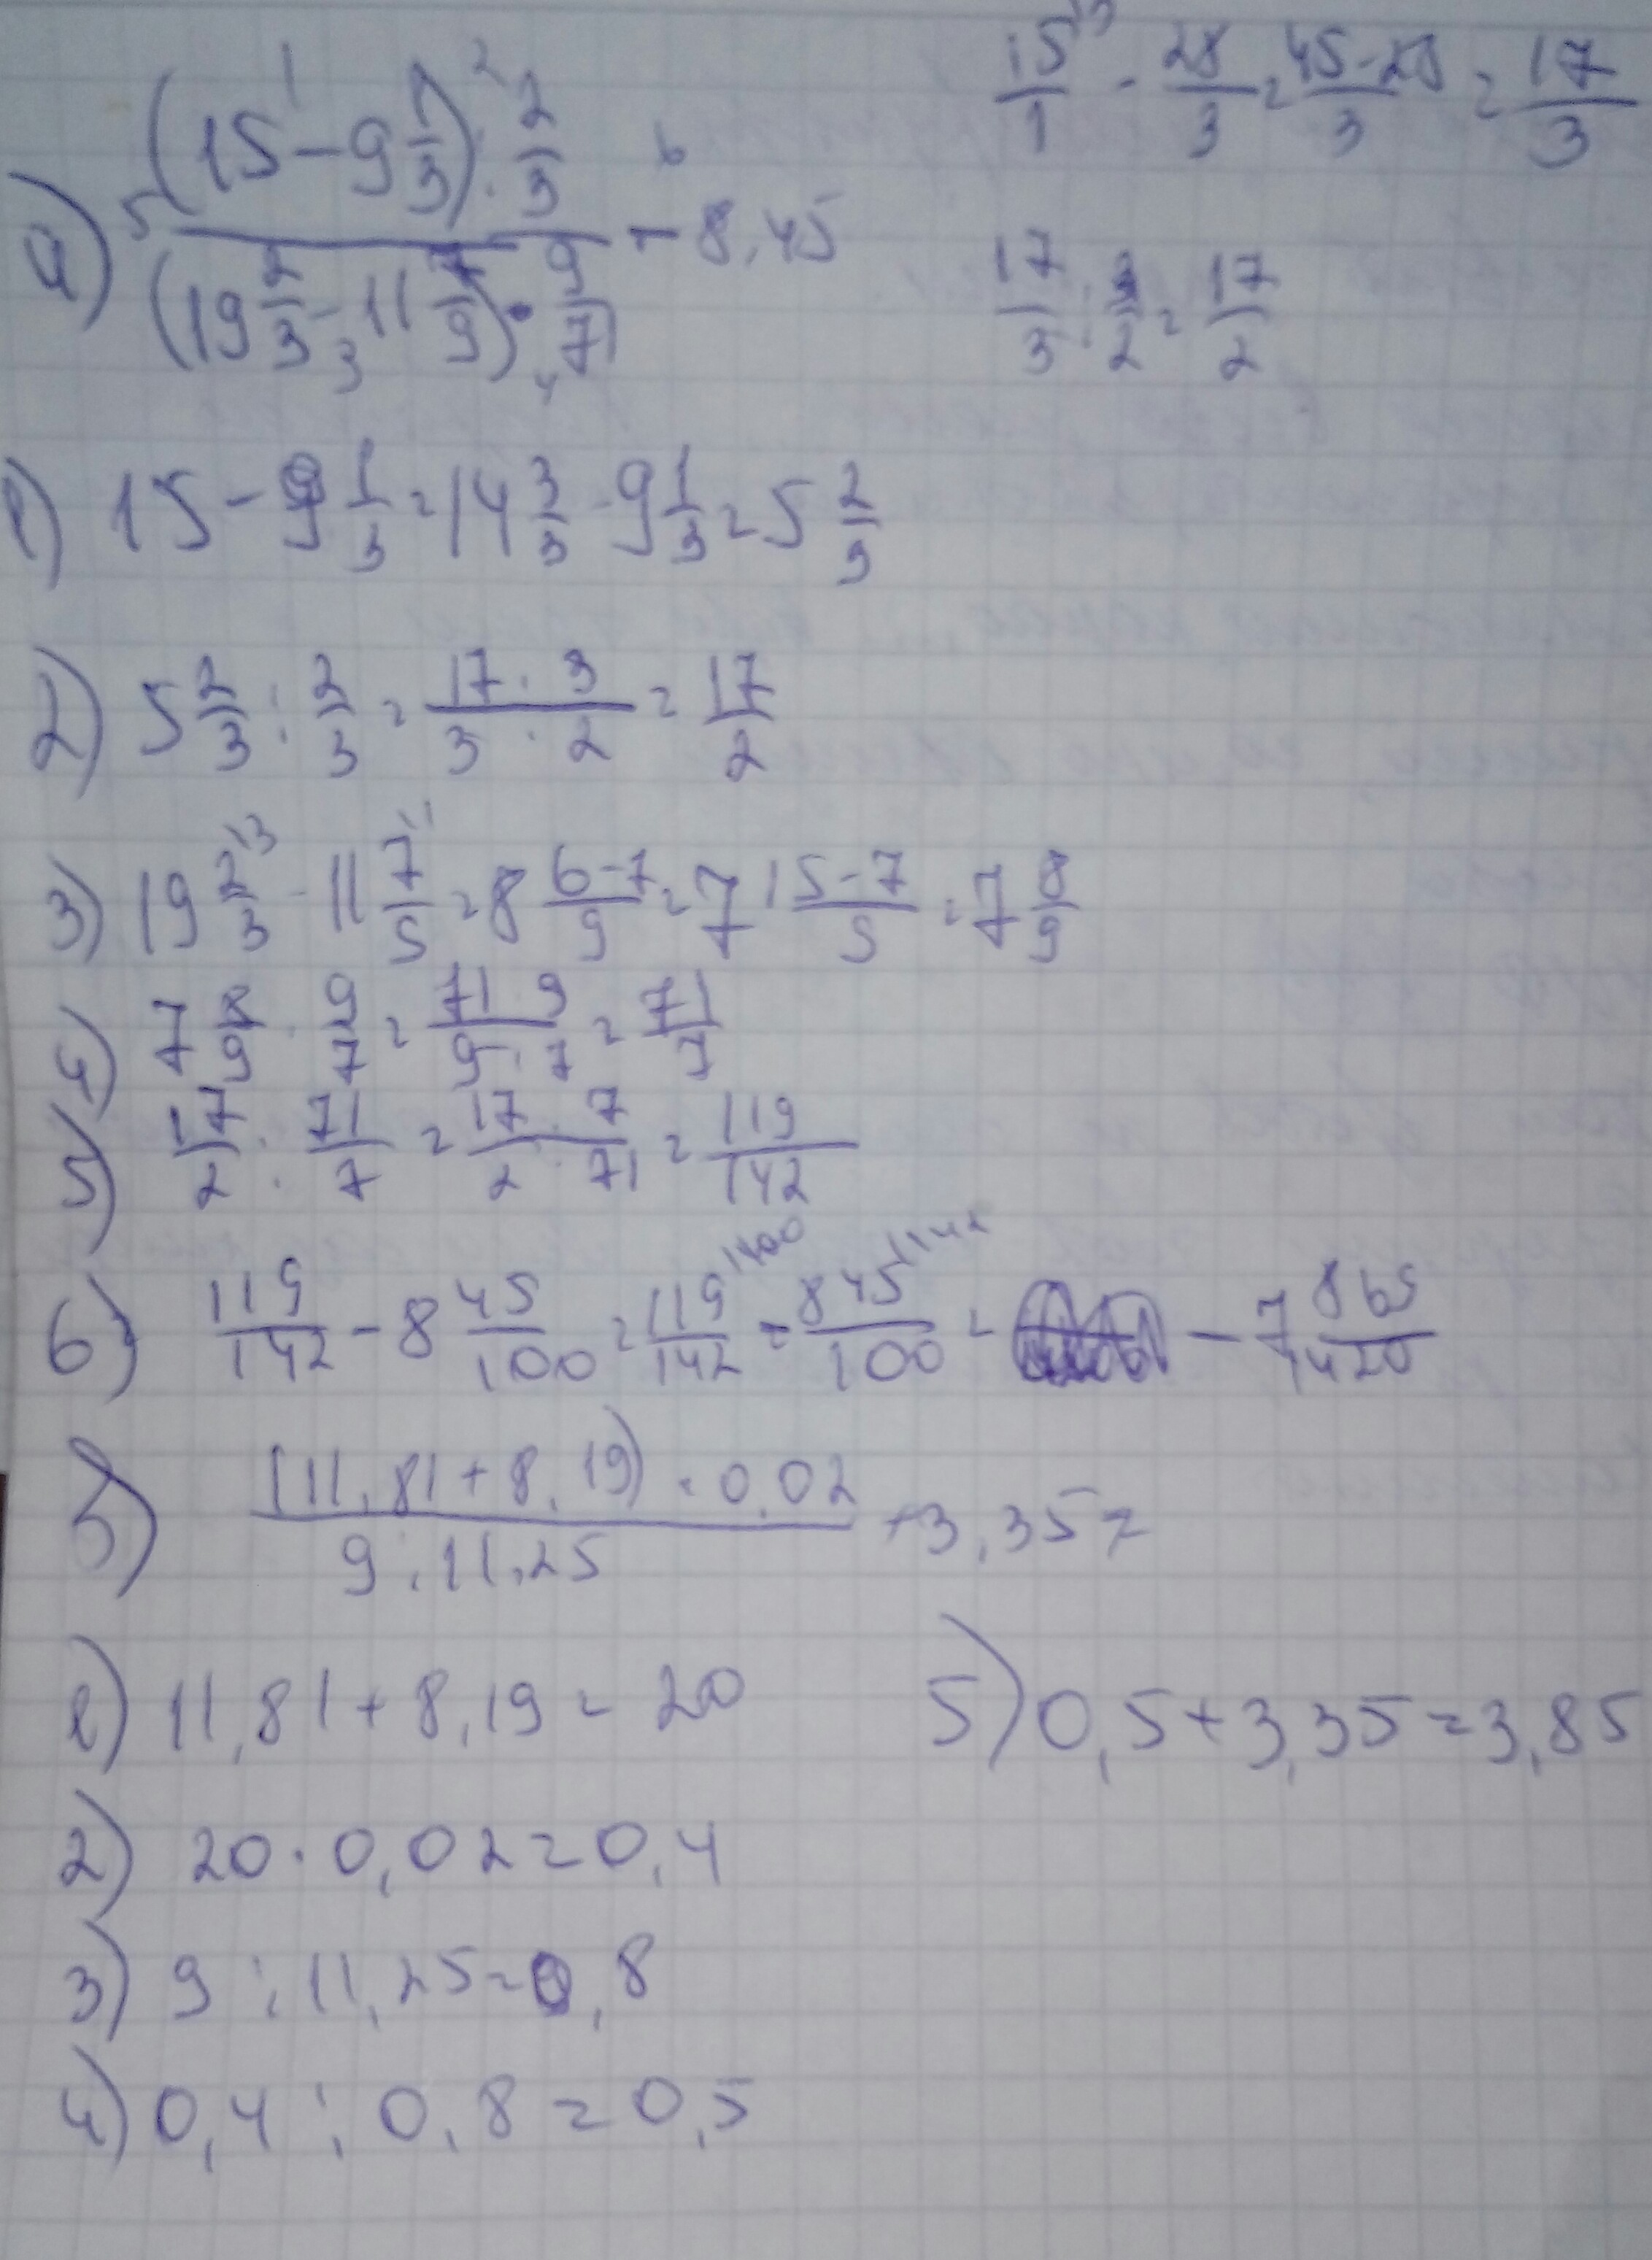 а) ((15 - 9 1/3) : 2/3) / ((19 2/3 - 11 7/9) · 9/71) - 8,45
15/1 - 28/3 = 45-28/3 = 17/3
17/3 · 3/2 = 17/2
1) 15 - 9 1/3 = 14 3/3 - 9 1/3 = 5 2/3
2) 5 2/3 : 2/3 = 17 · 3/3 · 2 = 17/2
3) 19 2/3 - 11 7/9 = 8 6-7/9 = 7 15-7/9 = 7 8/9
4) 7 8/9 · 9/7 = 71 · 9/9 · 7 = 71/7
5) 17/2 : 71/7 = 17 · 7/2 · 71 = 119/142
6) 119/142 - 8 45/100 = 119/142 - 845/100 = - 7 865/1420
б) (11,81 + 8,19) · 0,02 / 9 : 11,25 + 3,35 =
1) 11,81 + 8,19 = 20
5) 0,5 + 3,35 = 3,85
2) 20 · 0,02 = 0,4
3) 9 : 11,25 = 0,8
4) 0,4 : 0,8 = 0,5